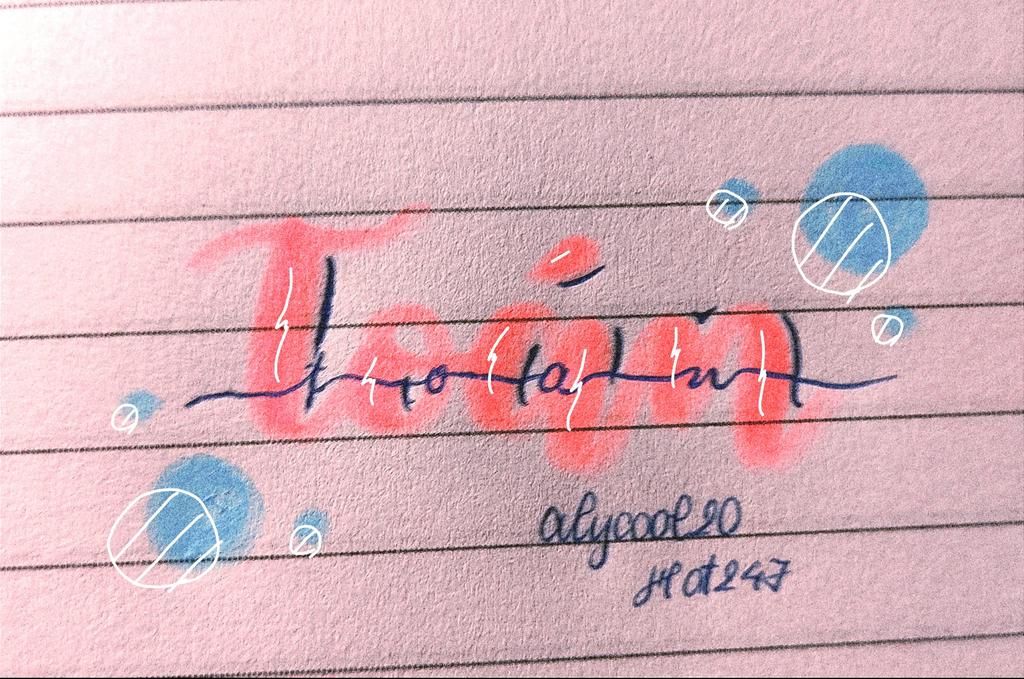 Toán
alycool20
Hot247